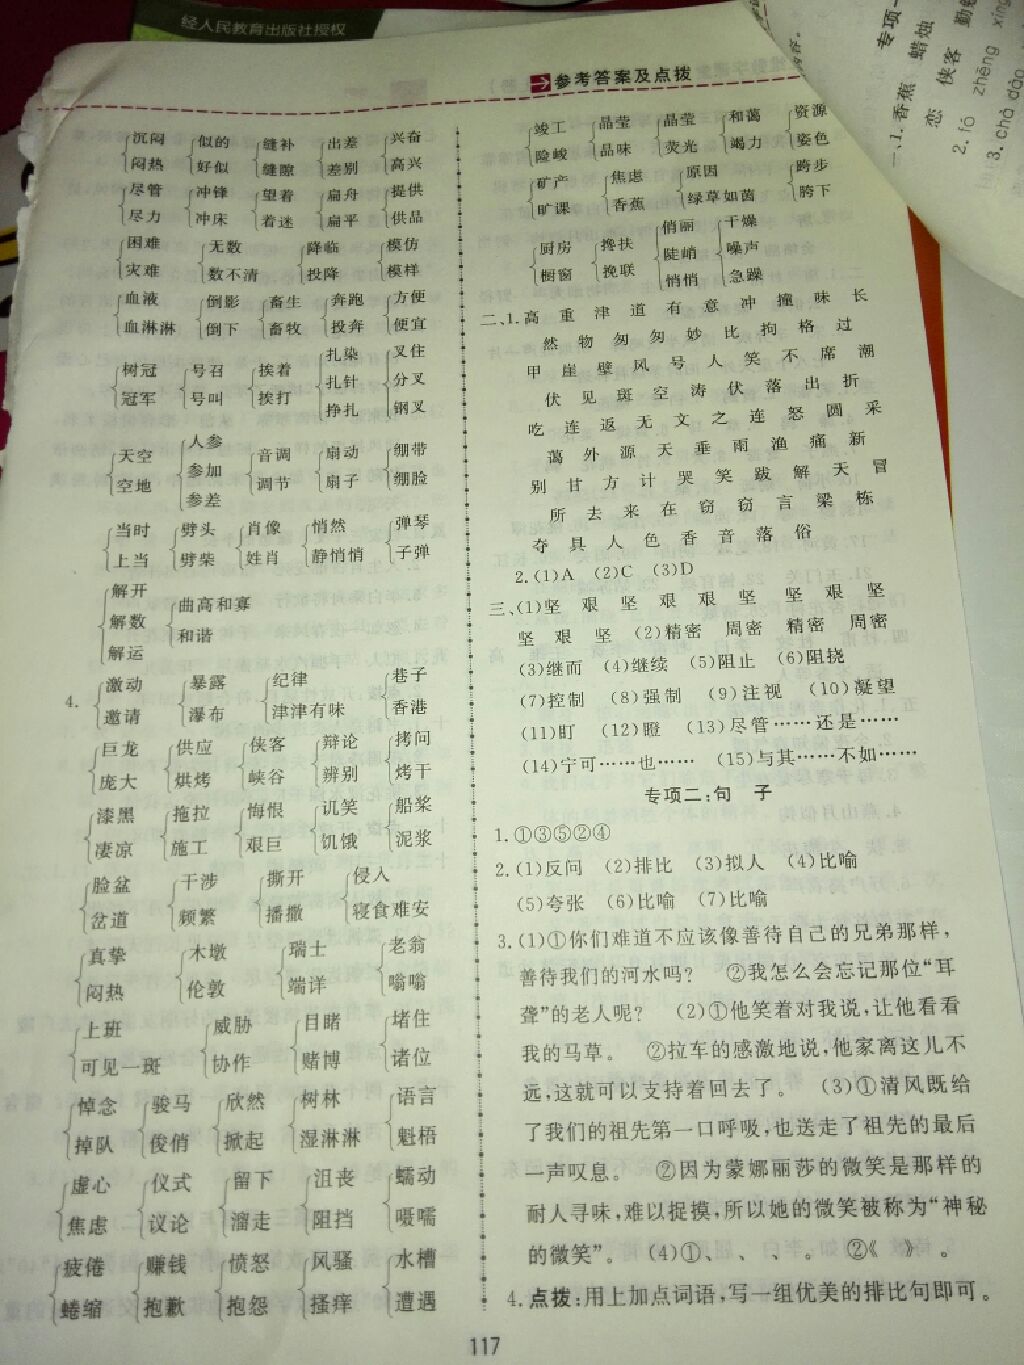 经人民教育出版社授权
参考答案及点拨
沉闷 似的 缝补 出差 兴奋
闷热 好似 缝隙 差别 高兴
尽管 冲锋 望着 扁舟 提供
尽力 冲床 着迷 扁平 供品
困难 无数 降临 模仿
灾难 数不清 投降 模样
血液 倒影 畜生 奔跑 方便
血淋淋 倒下 畜牧 投奔 便宜
树冠 号召 挨着 扎染 叉住
冠军 号叫 挨打 扎针 分叉
挣扎 钢叉
天空 人参 音调 扇动 绷带
空地 参加 调节 扇子 绷脸
参差
当时 劈头 肖像 悄然 弹琴
上当 劈柴 姓肖 静悄悄 子弹
解开 曲高和寡
解数 和谐
解运
4. 激动 暴露 纪律 巷子
邀请 瀑布 津津有味 香港
巨龙 供应 侠客 辩论 拷问
庞大 烘烤 峡谷 辨别 烤干
漆黑 拖拉 悔恨 讥笑 船桨
凄凉 施工 艰巨 饥饿 泥浆
脸盆 干涉 撕开 侵入
岔道 频繁 播撒 寝食难安
真挚 木墩 瑞士 老翁
闷热 伦敦 端详 嗡嗡
上班 威胁 目睹 堵住
可见一斑 协作 赌博 诸位
悼念 骏马 欣然 树林 语言
掉队 俊俏 掀起 湿淋淋 魁梧
虚心 仪式 留下 沮丧 蠕动
焦虑 议论 溜走 阻挡 嗫嚅
疲倦 赚钱 愤怒 风骚 水槽
蜷缩 抱歉 抱怨 搔痒 遭遇
竣工 晶莹 晶莹 和蔼 资源
险峻 品味 荧光 竭力 姿色
矿产 焦虑 原因 跨步
旷课 香蕉 绿草如茵 胯下
厨房 搀扶 俏丽 干燥
橱窗 挽联 陡峭 噪声
悄悄 急躁
二、1.高 重 津 道 有 意 冲 撞 味 长
然 物 匆 匆 妙 比 拘 格 过
甲 崖 壁 风 号 人 笑 不 席 潮
伏 见 斑 空 涛 伏 落 出 折
吃 连 返 无 文 之 连 怒 圆 采
蔼 外 源 天 垂 雨 渔 痛 新
别 甘 方 计 哭 笑 跋 解 天 冒
所 去 来 在 窃 窃 言 梁 栋
夺 具 人 色 香 音 落 俗
2.(1)A (2)C (3)D
三、(1)坚 艰 坚 艰 艰 坚 坚 艰 坚
坚 艰 坚 (2)精密 周密 精密 周密
(3)继而 (4)继续 (5)阻止 (6)阻挠
(7)控制 (8)强制 (9)注视 (10)凝望
(11)盯 (12)瞪 (13)尽管……还是……
(14)宁可……也…… (15)与其……不如……
专项二:句 子
1.①③⑤②④
2.(1)反问 (2)排比 (3)拟人 (4)比喻
(5)夸张 (6)比喻 (7)比喻
3.(1)①你们难道不应该像善待自己的兄弟那样,
善待我们的河水吗? ②我怎么会忘记那位“耳
聋”的老人呢? (2)①他笑着对我说,让他看看
我的马草。 ②拉车的感激地说,他家离这儿不
远,这就可以支持着回去了。 (3)①清风既给
了我们的祖先第一口呼吸,也送走了祖先的最后
一声叹息。 ②因为蒙娜丽莎的微笑是那样的
耐人寻味,难以捉摸,所以她的微笑被称为“神秘
的微笑”。 (4)①、 、 、 。 ②《 》 。
4.点拨:用上加点词语,写一组优美的排比句即可。
117
专项一
一、1.香蕉 蜡烛
恋 侠客
2.fó zhēng
3.chà dào